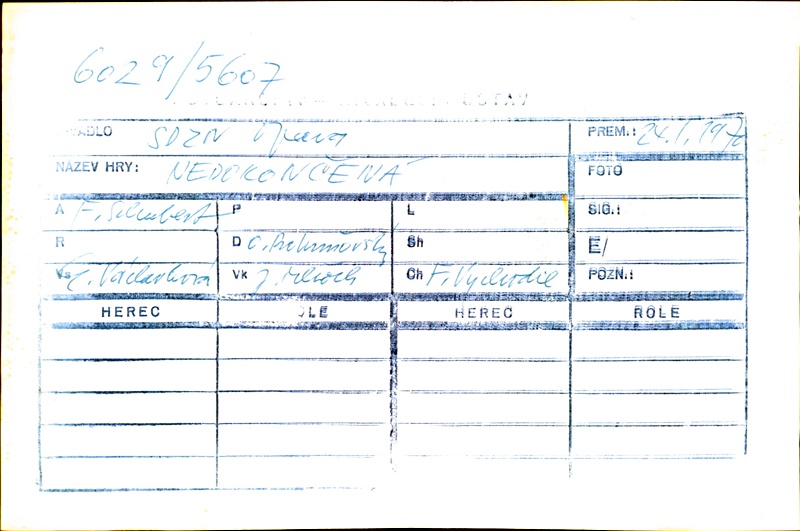 6029/5607
DIVADLO SDZN Opava PREM.: 24.I.197
NÁZEV HRY: NEDOKONČENÁ FOTO
A F. Schubert P L SIG.:
R D O. Sh E/
Vs Václavková Vk J. Ch F. Vychodil POZN.:
HEREC ROLE HEREC ROLE